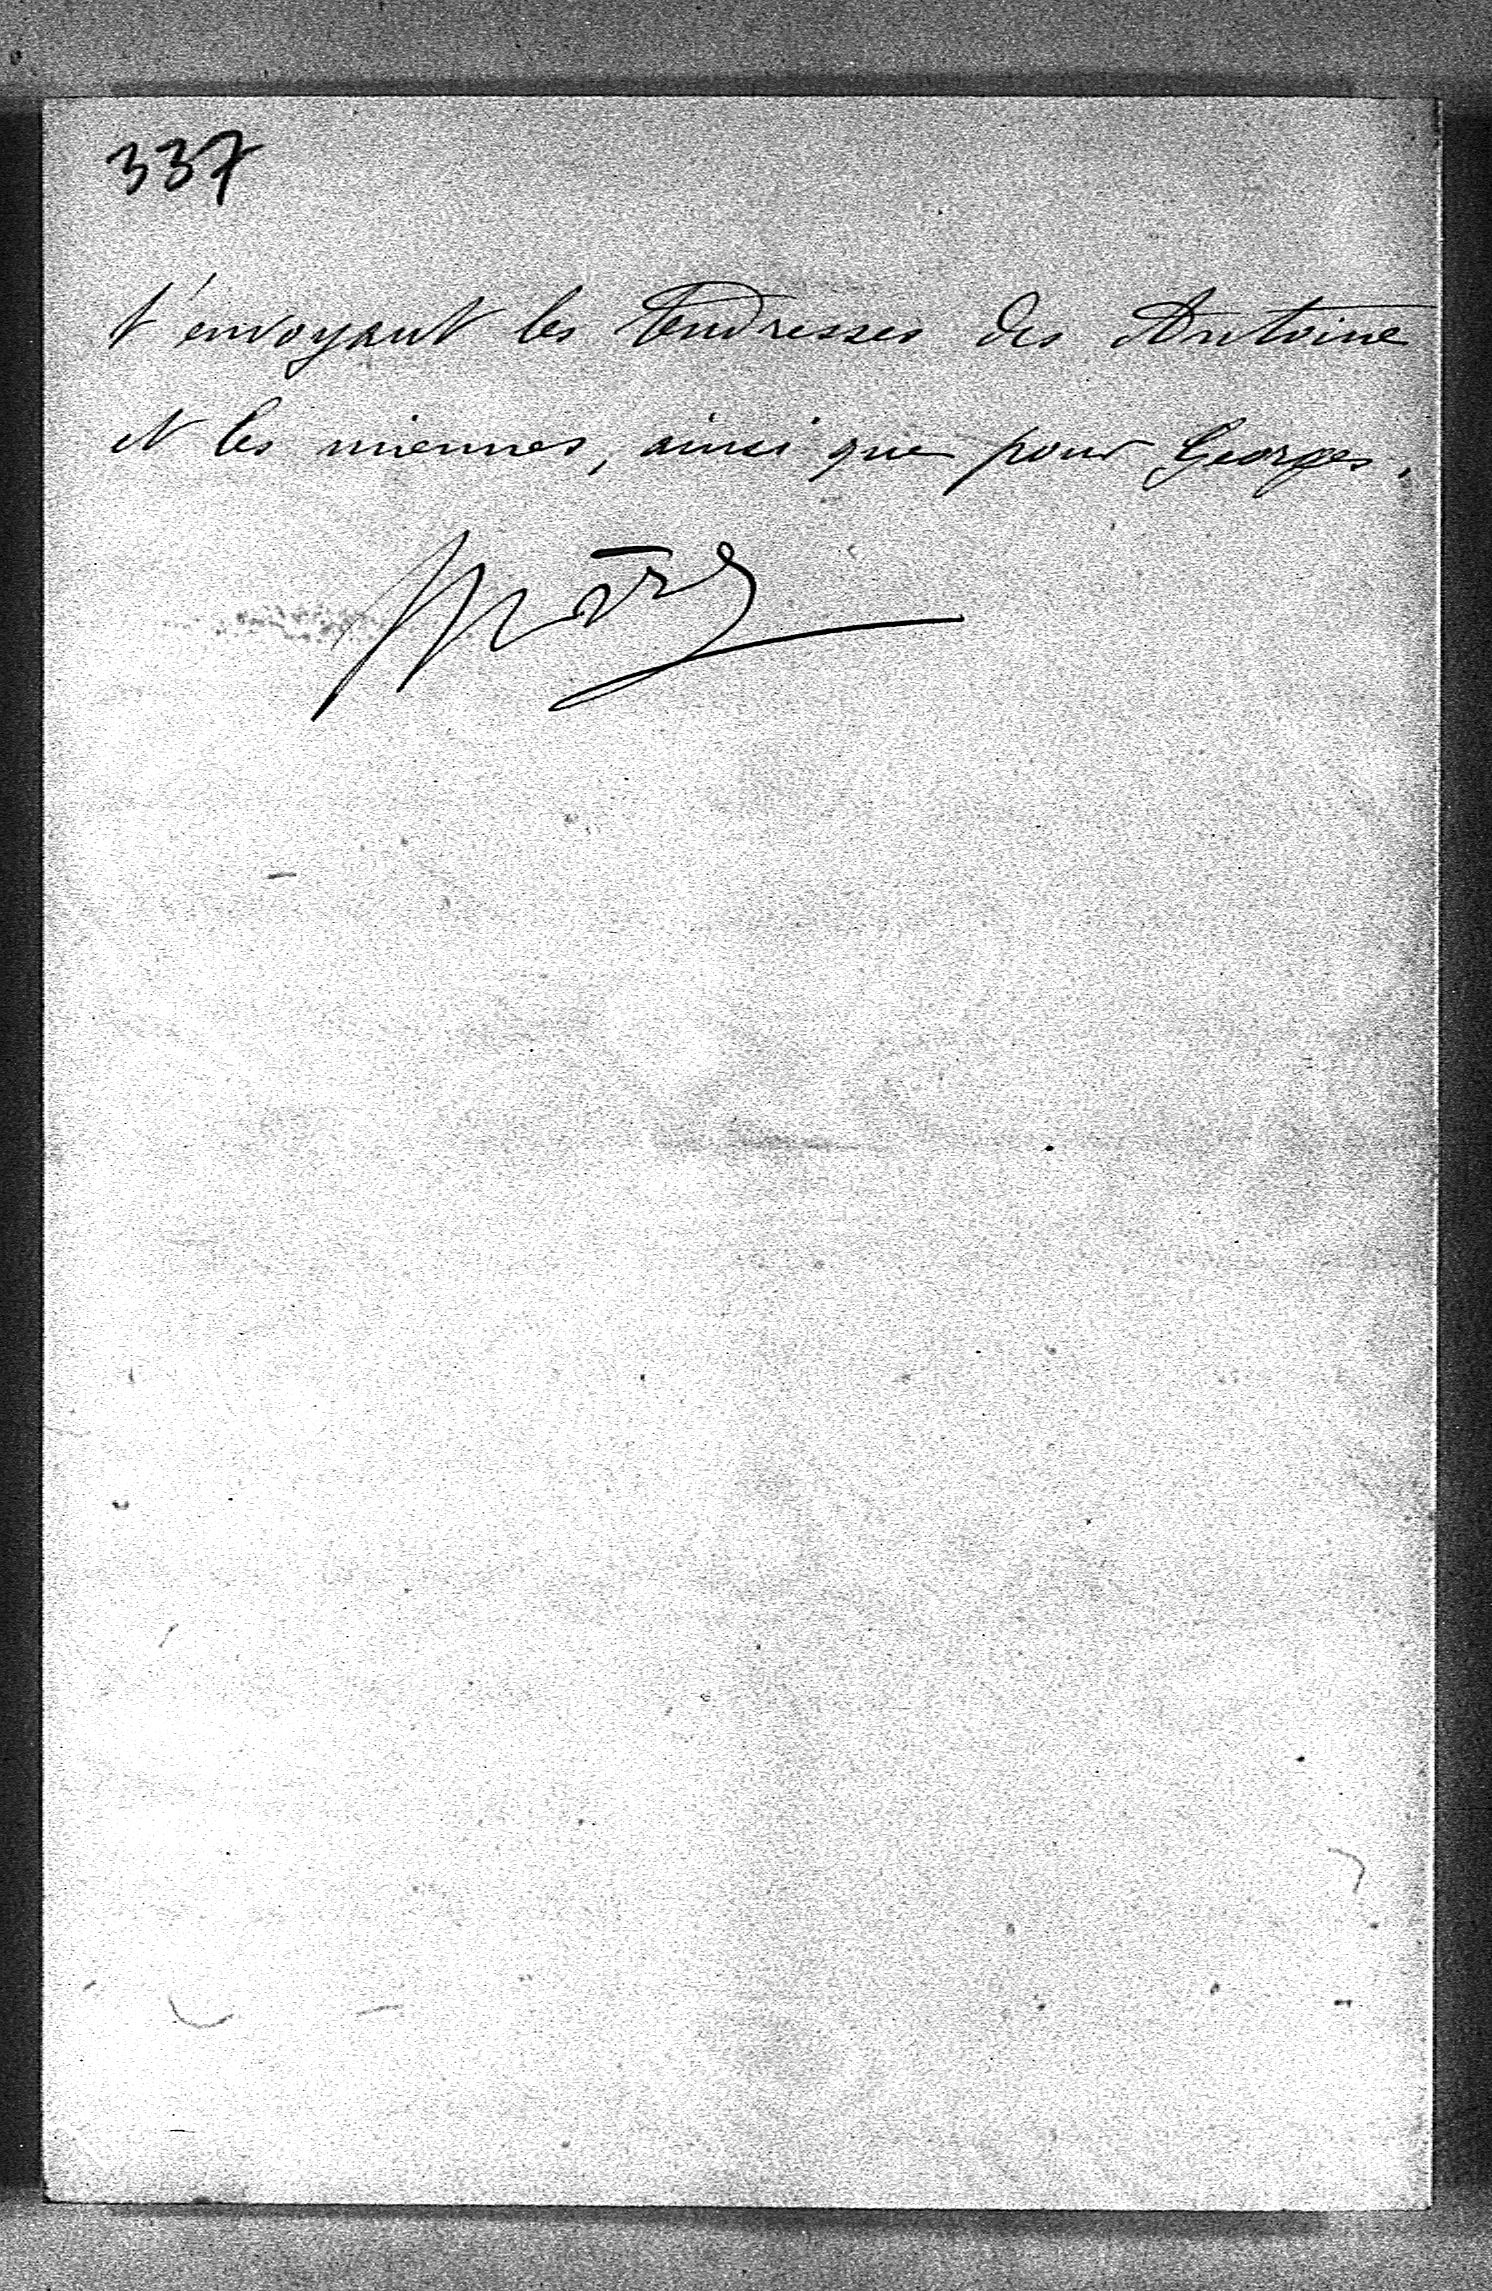 337
t'envoyant les tendresses des Antoine
et les miennes, ainsi que pour Georges.